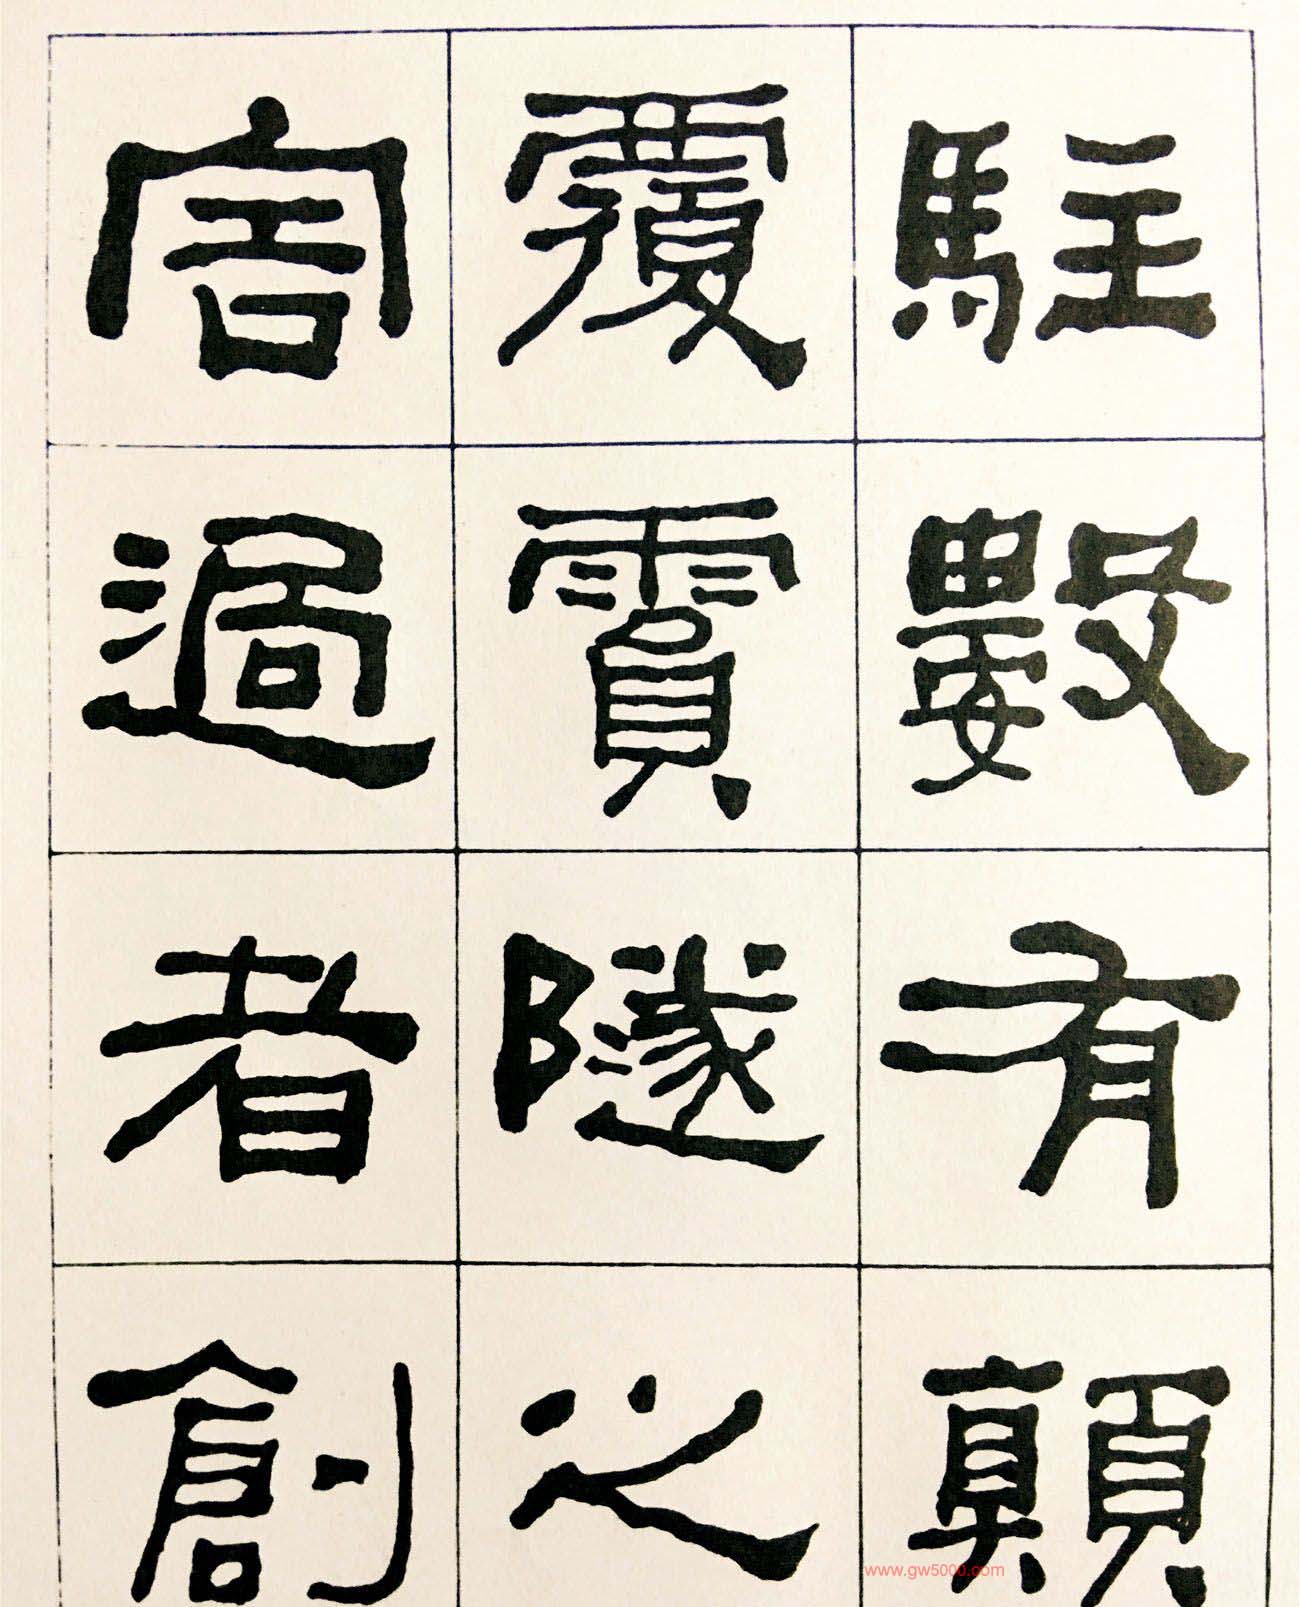 駐數有顛
覆霣隧之
害過者創
www.gw5000.com